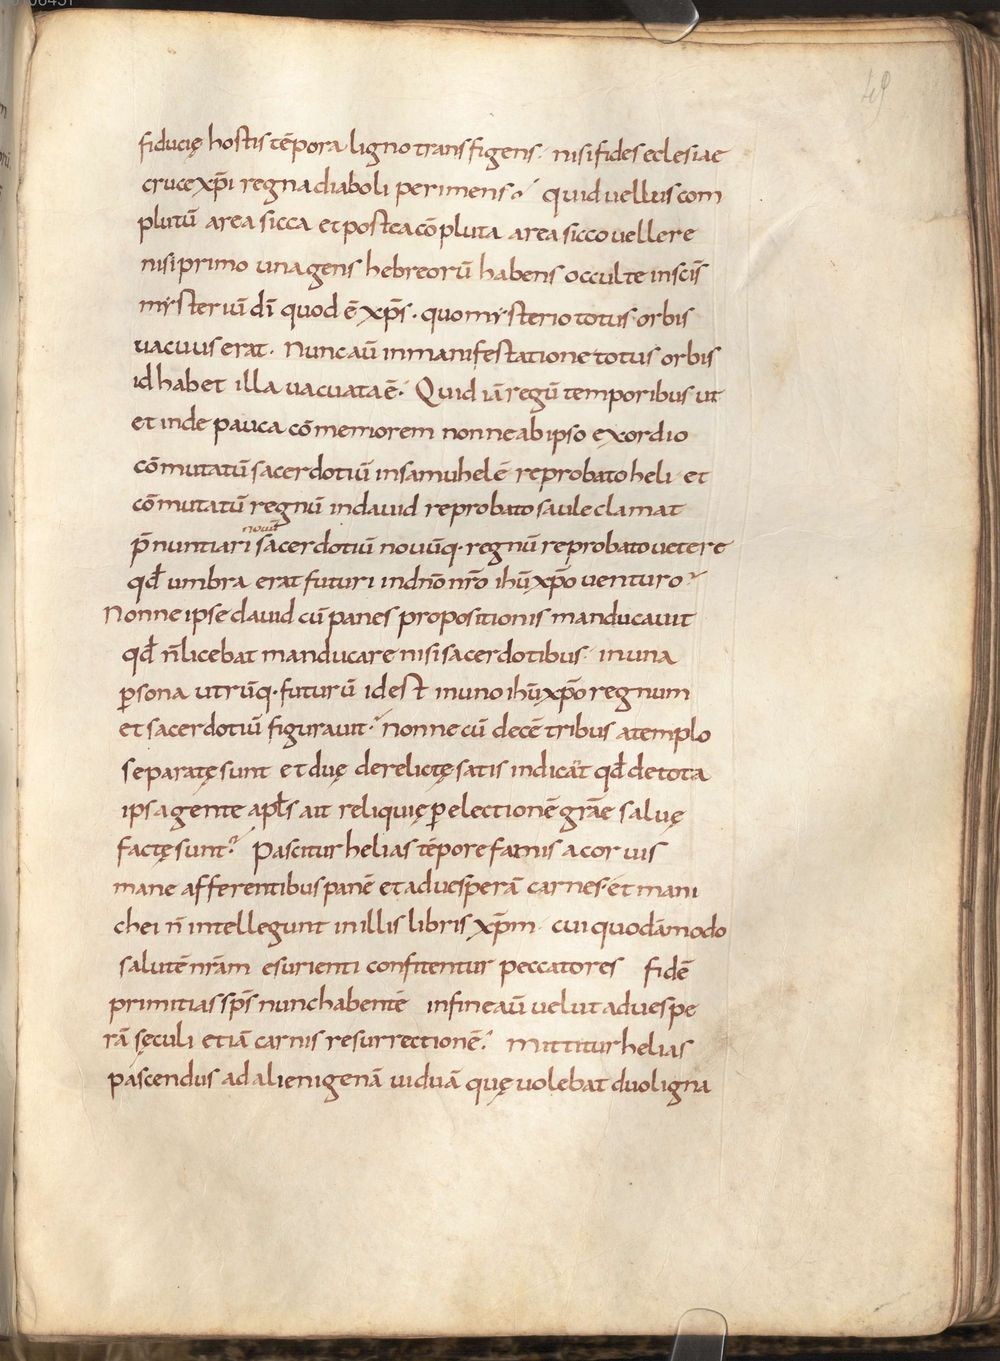 49
fiducię hostis tēpora ligno transfigens· nisi fides eclesiae
cruce xp̄i regna diaboli perimens? quid vellus com
plutū area sicca et postea cōpluta area sicco uellere
nisi primo una gens hebreorū habens occulte in scīs
mysteriū dī quod ē xp̄s· quo mysterio totus orbis
uacuus erat· Nunc aū in manifestatione totus orbis
id habet illa uacuata ē· Quid iā regū temporibus ut
et inde pauca cōmemorem nonne ab ipso exordio
cōmutatū sacerdotiū in samuhelē reprobato heli et
cōmutatū regnū in dauid reprobato saule clamat
nouū
p̄nuntiari sacerdotiū nouūq· regnū reprobato uetere
qđ umbra erat futuri in dn̄o nr̄o ihū xp̄o uenturo?
Nonne ipse dauid cū panes propositionis manducauit
qđ n̄ licebat manducare nisi sacerdotibus· in una
p̱sona utrūq· futurū id est in uno ihū xp̄o regnum
et sacerdotiū figurauit? Nonne cū decē tribus a templo
separatę sunt et duę derelictę satis indicāt qđ de tota
ipsa gente apl̄s ait reliquię p̱ electionē grāe saluę
factę sunt? Pascitur helias tēpore famis a coruis
mane afferentibus panē et ad uesperā carnes· et mani
chei n̄ intellegunt in illis libris xp̄m· cui quodāmodo
salutē nr̄am esurienti confitentur peccatores fidē
primitias sp̄s nunc habentē in fine aū uelut ad uespe
rā sęculi etiā carnis resurrectionē? Mittitur helias
pascendus ad alienigenā uiduā quę uolebat duo ligna